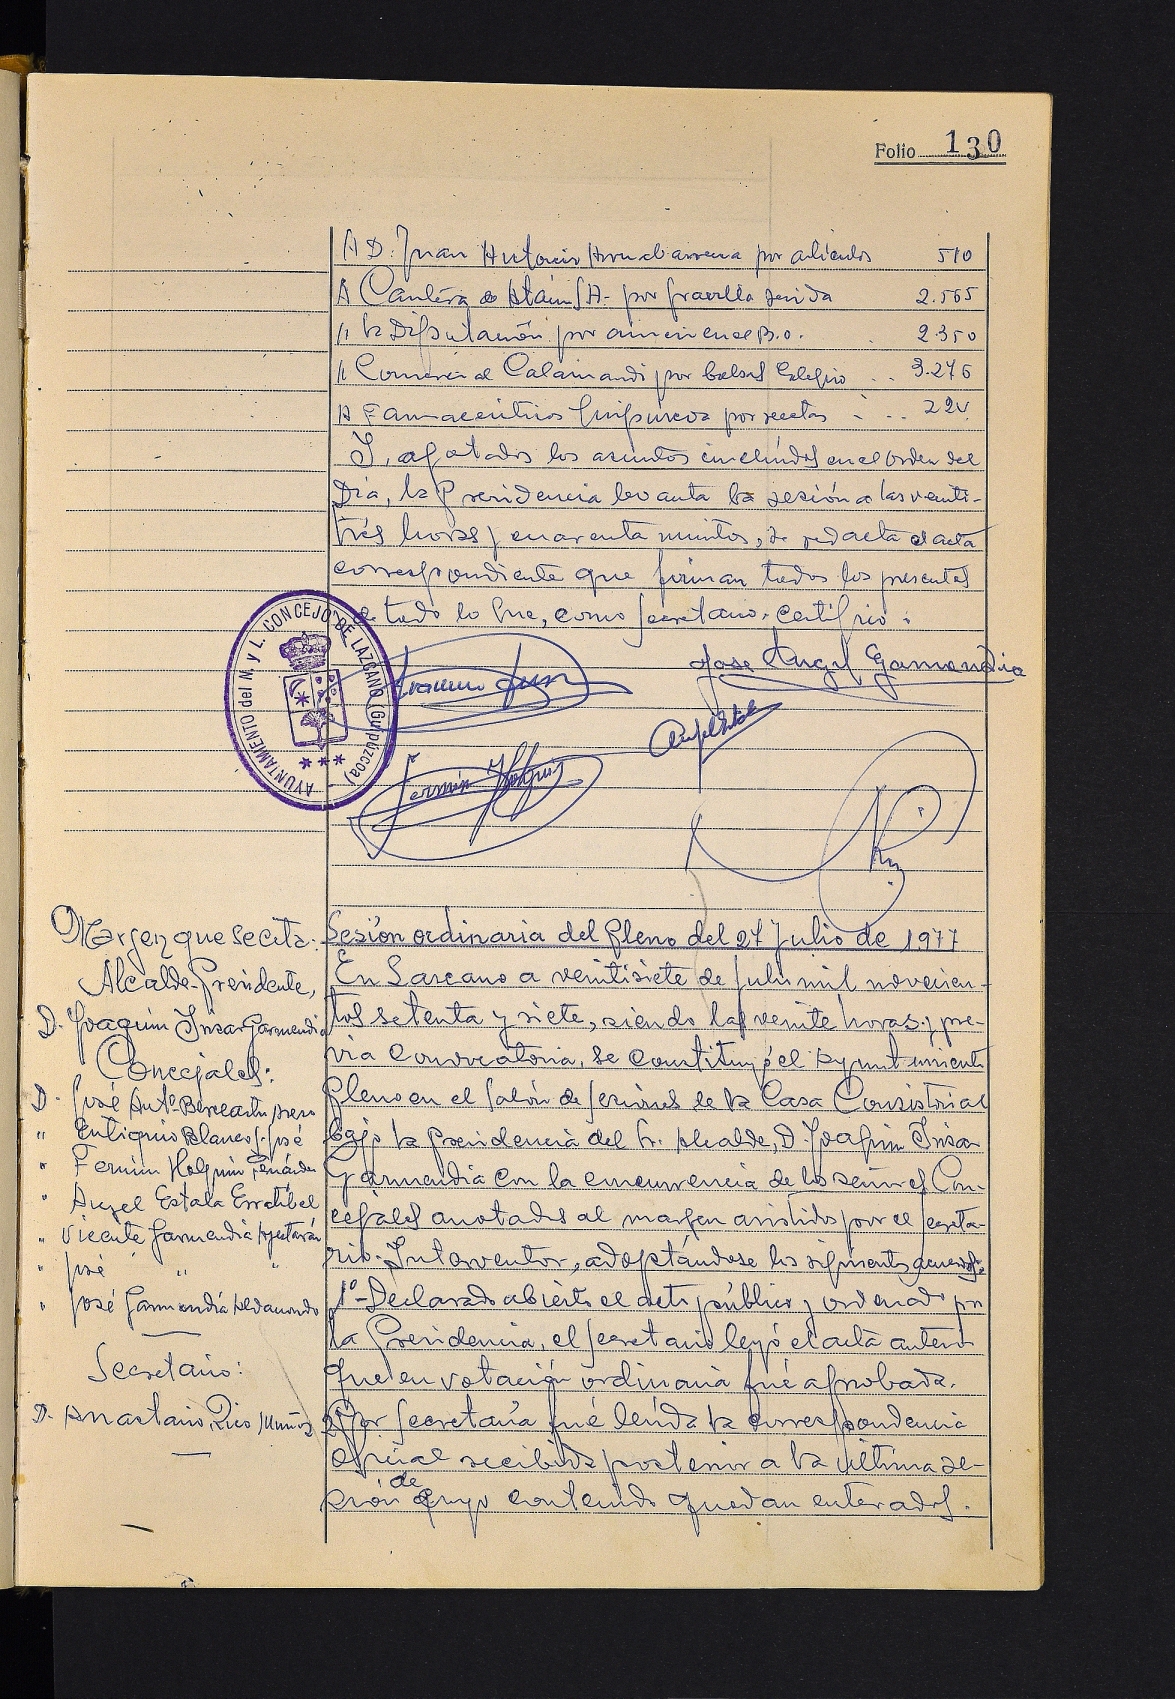 Folio 130
A D. Juan Antonio por artículos 510
A Cantera de Ataun S.A. por gravilla servida 2.565
A la Diputación por anuncio en el B.O. 2.350
A Comercial Calamandi por bolsas Colegio 3.276
A Farmacéuticos Guipúzcoa por recetas 220
Y, agotados los asuntos incluídos en el Orden del
Día, la Presidencia levanta la sesión a las veinti-
trés horas y cuarenta minutos, se redacta el acta
correspondiente que firman todos los presentes
de todo lo que, como Secretario, certifico:
AYUNTAMIENTO del N. y L. CONCEJO DE LAZCANO (Guipúzcoa)
Jose Angel Garmendia
Angel Estala
Fermín Holguin
Margen que se cita:
Alcalde-Presidente,
D. Joaquín Insar Garmendia
Concejales:
D. José Antº
" Eutiquio Blanco José
" Fermin Holguin Fernández
" Angel Estala Erratibel
" Vicente Garmendia
" José " "
" José Garmendia
Secretario:
D. Anastasio Rico Muñoz
Sesión ordinaria del Pleno del 27 Julio de 1977
En Lazcano a veintisiete de Julio mil novecien-
tos setenta y siete, siendo las veinte horas y pre-
via Convocatoria, se constituyó el Ayuntamiento
Pleno en el Salón de Sesiones de la Casa Consistorial
bajo la Presidencia del Sr. Alcalde, D. Joaquín Insar
Garmendia con la concurrencia de los señores Con-
cejales anotados al margen asistidos por el Secreta-
rio-Interventor, adoptándose los siguientes acuerdos:
1º-Declarado abierto el acto público y ordenado por
la Presidencia, el Secretario leyó el acta anterior
que en votación ordinaria fué aprobada.
2º-Por Secretaría fué leída la correspondencia
oficial recibida posterior a la última se-
sión de cuyo contenido quedan enterados.